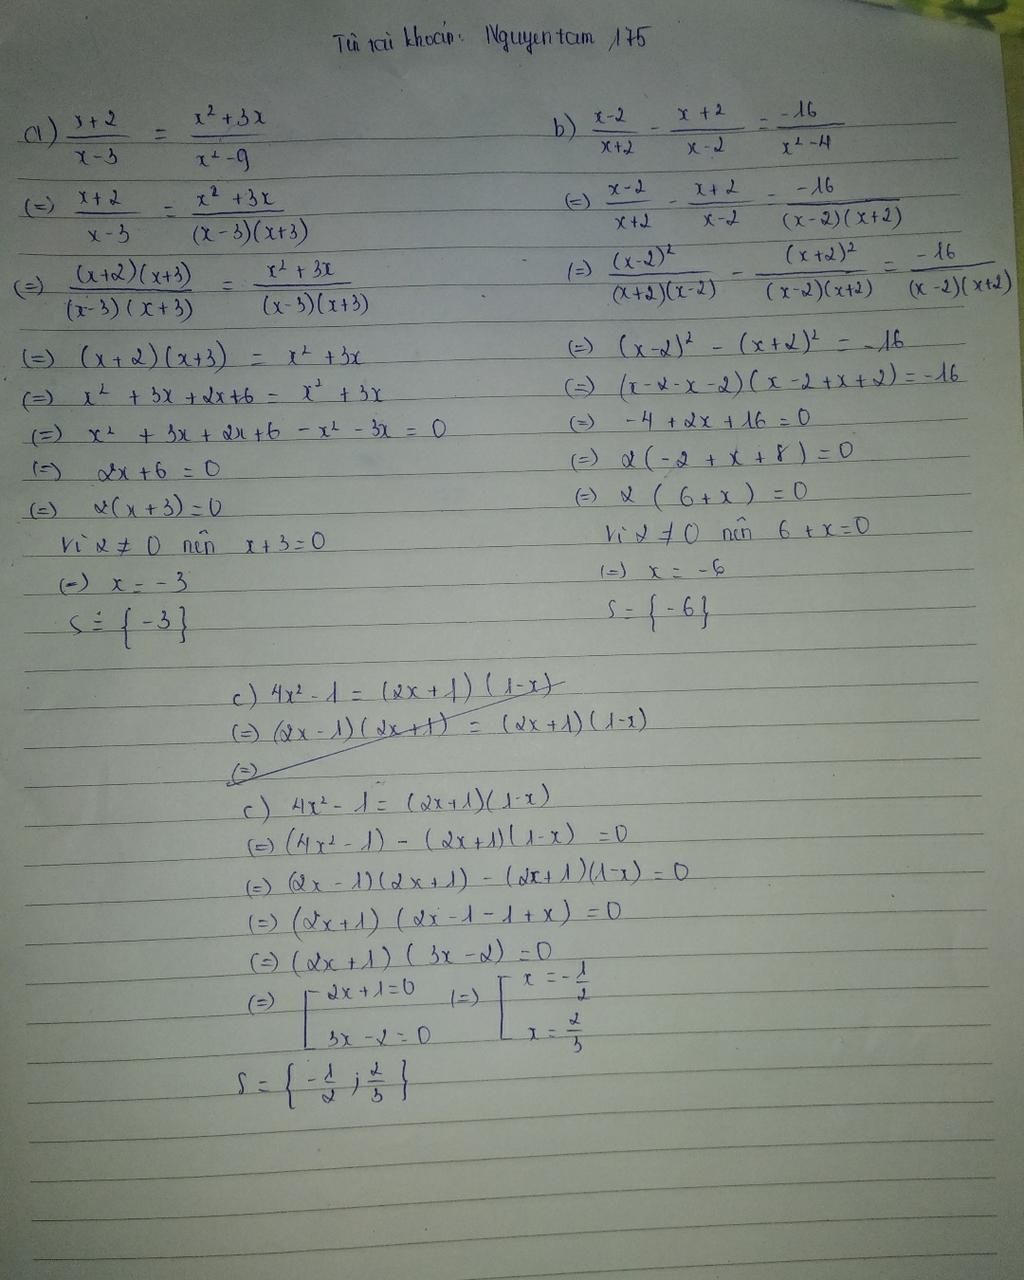 Tên tài khoản: Nguyentam 175
a) \frac{x+2}{x-3} = \frac{x²+3x}{x²-9}
(=) \frac{x+2}{x-3} = \frac{x²+3x}{(x-3)(x+3)}
(=) \frac{(x+2)(x+3)}{(x-3)(x+3)} = \frac{x²+3x}{(x-3)(x+3)}
(=) (x+2)(x+3) = x²+3x
(=) x² + 3x + 2x + 6 = x² + 3x
(=) x² + 3x + 2x + 6 - x² - 3x = 0
(=) 2x + 6 = 0
(=) 2(x+3) = 0
Vì 2 ≠ 0 nên x+3=0
(=) x = -3
S = {-3}
b) \frac{x-2}{x+2} - \frac{x+2}{x-2} = \frac{-16}{x²-4}
(=) \frac{x-2}{x+2} - \frac{x+2}{x-2} = \frac{-16}{(x-2)(x+2)}
(=) \frac{(x-2)²}{(x+2)(x-2)} - \frac{(x+2)²}{(x-2)(x+2)} = \frac{-16}{(x-2)(x+2)}
(=) (x-2)² - (x+2)² = -16
(=) (x-2-x-2)(x-2+x+2) = -16
(=) -4 + 2x + 16 = 0
(=) 2(-2 + x + 8) = 0
(=) 2(6+x) = 0
Vì 2 ≠ 0 nên 6 + x = 0
(=) x = -6
S = {-6}
c) 4x² - 1 = (2x+1)(1-x)
(=) (2x-1)(2x+1) = (2x+1)(1-x)
(=)
c) 4x² - 1 = (2x+1)(1-x)
(=) (4x²-1) - (2x+1)(1-x) = 0
(=) (2x-1)(2x+1) - (2x+1)(1-x) = 0
(=) (2x+1)(2x-1-1+x) = 0
(=) (2x+1)(3x-2) = 0
(=) [ 2x+1=0 (=) [ x = -\frac{1}{2}
3x-2=0 x = \frac{2}{3}
S = {-\frac{1}{2}; \frac{2}{3}}